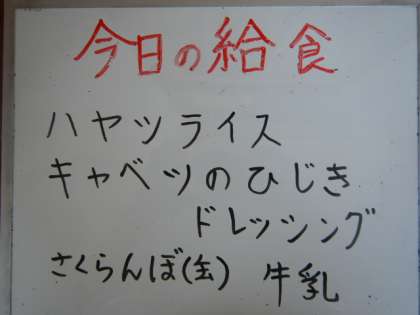 今日の給食
ハヤツライス
キャベツのひじき
ドレッシング
さくらんぼ(缶) 牛乳